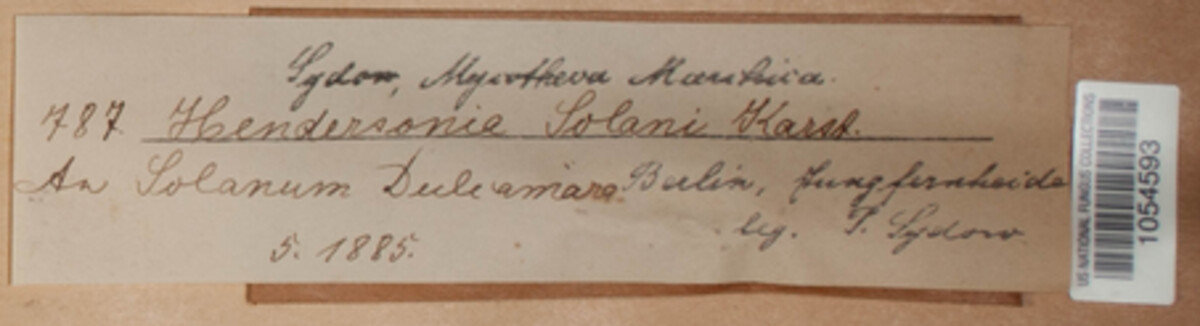 Sydow, Mycotheca Marchica.
787. Hendersonia Solani Karst.
An Solanum Dulcamara Berlin, Jungfernheide
5. 1885. leg. P. Sydow.
US NATIONAL FUNGUS COLLECTIONS
1054593